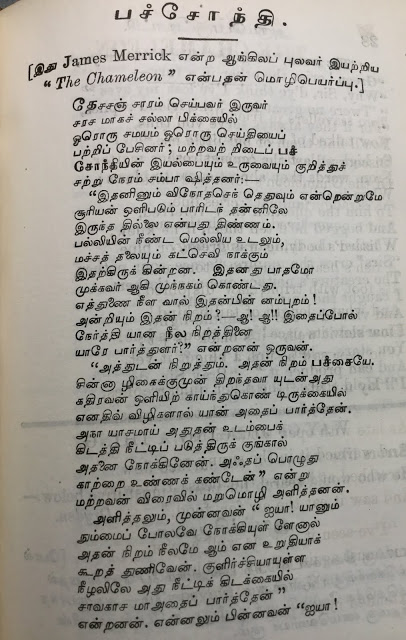 பச்சோந்தி.
[இது James Merrick என்ற ஆங்கிலப் புலவர் இயற்றிய
“ The Chameleon ” என்பதன் மொழிபெயர்ப்பு.]
தேசசஞ் சாரம் செய்பவர் இருவர்
சரச மாகச் சல்லா பிக்கையில்
ஓரொரு சமயம் ஒரொரு செய்தியைப்
பற்றிப் பேசினர்; மற்றவற் றிடைப் பச்
சோந்தியின் இயல்பையும் உருவையும் குறித்துச்
சற்று நேரம் சம்பா ஷித்தனர்:—
“இதனினும் விநோதசெந் தெதுவும் என்றென்றுமே
சூரியன் ஒளிபடும் பாரிடந் தன்னிலே
இருந்த தில்லை என்பது திண்ணம்.
பல்லியின் நீண்ட மெல்லிய உடலும்,
மச்சத் தலையும் கட்செவி நாக்கும்
இதற்கிருக் கின்றன. இதனது பாதமோ
முக்கவர் ஆகி முந்நகம் கொண்டது.
எத்துணை நீள வால் இதன்பின் னம்புறம்!
அன்றியும் இதன் நிறம்?—ஆ! ஆ!! இதைப்போல்
நேர்த்தி யான நீல நிறத்தினை
யாரே பார்த்துளர்?” என்றனன் ஒருவன்.
“அத்துடன் நிறுத்தும். அதன் நிறம் பச்சையே.
சின்னா ழிகைக்குமுன் திறந்தவா யுடன்அது
கதிரவன் ஒளியிற் காய்ந்துகொண் டிருக்கையில்
எனதிவ் விழிகளால் யான் அதைப் பார்த்தேன்.
அநா யாசமாய் அதுதன் உடம்பைக்
கிடத்தி நீட்டிப் படுத்திருக் குங்கால்
அதனை நோக்கினேன். அஃதப் பொழுது
காற்றை உண்ணக் கண்டேன்” என்று
மற்றவன் விரைவில் மறுமொழி அளித்தனன்.
அளித்தலும், முன்னவன் “ ஐயா! யானும்
தும்மைப் போலவே நோக்கியுள் ளேனால்
அதன் நிறம் நீலமே ஆம் என உறுதியாக்
கூறத் துணிவேன். குளிர்ச்சியாயுள்ள
நீழலிலே அது நீட்டிக் கிடக்கையில்
சாவகாச மாஅதைப் பார்த்தேன் ”
என்றனன். என்னலும் பின்னவன் “ஐயா!